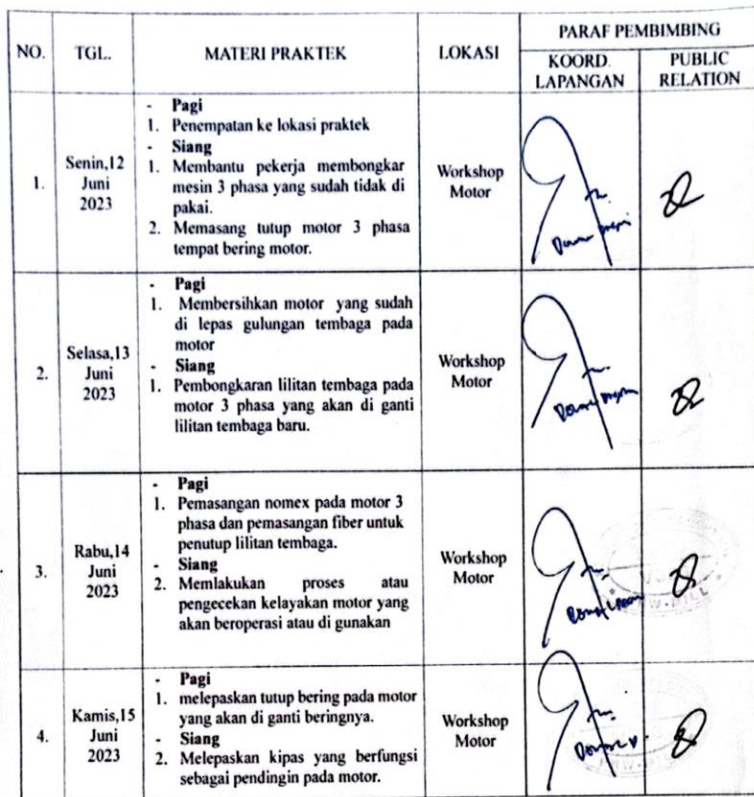 NO.
TGL.
MATERI PRAKTEK
LOKASI
PARAF PEMBIMBING
KOORD.
LAPANGAN
PUBLIC
RELATION
1.
Senin,12
Juni
2023
- Pagi
1. Penempatan ke lokasi praktek
- Siang
1. Membantu pekerja membongkar
mesin 3 phasa yang sudah tidak di
pakai.
2. Memasang tutup motor 3 phasa
tempat bering motor.
Workshop
Motor
2.
Selasa,13
Juni
2023
- Pagi
1. Membersihkan motor yang sudah
di lepas gulungan tembaga pada
motor
- Siang
1. Pembongkaran lilitan tembaga pada
motor 3 phasa yang akan di ganti
lilitan tembaga baru.
Workshop
Motor
3.
Rabu,14
Juni
2023
- Pagi
1. Pemasangan nomex pada motor 3
phasa dan pemasangan fiber untuk
penutup lilitan tembaga.
- Siang
2. Memlakukan proses atau
pengecekan kelayakan motor yang
akan beroperasi atau di gunakan
Workshop
Motor
4.
Kamis,15
Juni
2023
- Pagi
1. melepaskan tutup bering pada motor
yang akan di ganti beringnya.
- Siang
2. Melepaskan kipas yang berfungsi
sebagai pendingin pada motor.
Workshop
Motor